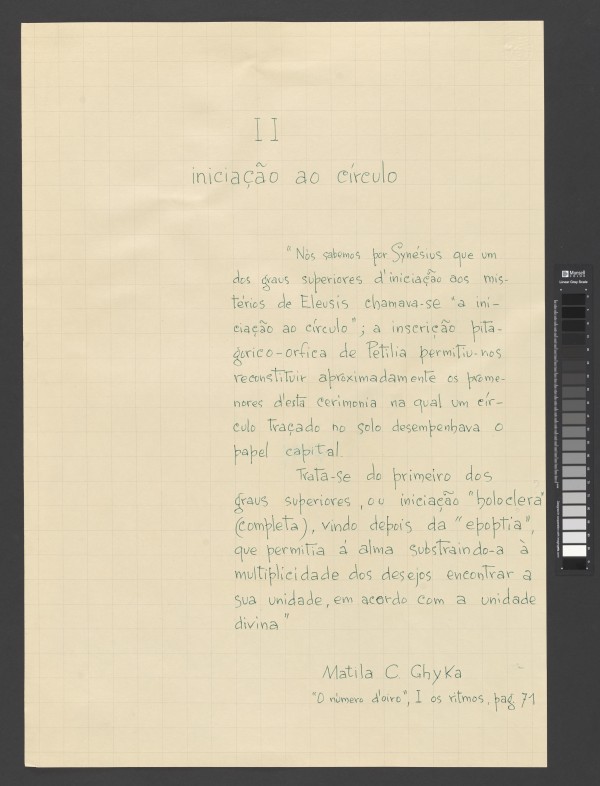 II
iniciação ao círculo
"Nós sabemos por Synésius que um
dos graus superiores d'iniciação aos mis-
térios de Eleusis chamava-se "a ini-
ciação ao círculo"; a inscrição pita-
gorico-orfica de Petilia permitiu-nos
reconstituir aproximadamente os prome-
nores d'esta cerimonia na qual um cír-
culo traçado no solo desempenhava o
papel capital.
Trata-se do primeiro dos
graus superiores, ou iniciação "holoclera"
(completa), vindo depois da "epoptia",
que permitia á alma substraindo-a à
multiplicidade dos desejos encontrar a
sua unidade, em acordo com a unidade
divina"
Matila C. Ghyka
"O número d'oiro", I os ritmos, pag 71